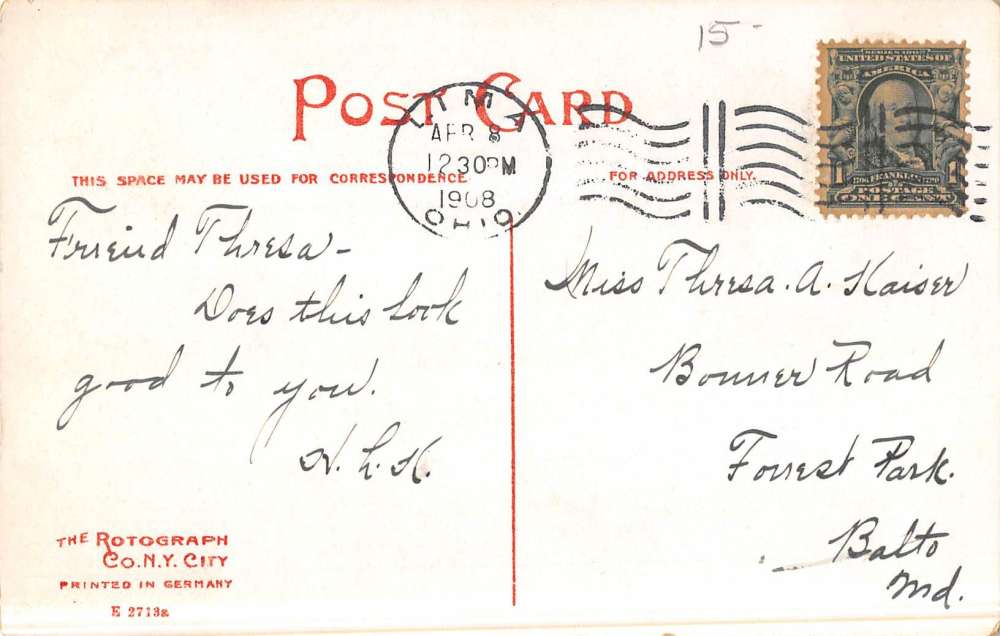 15-
POST CARD
LIMA
APR 8
1230PM
1908
OHIO
SERIES 1902
UNITED STATES OF
AMERICA
1 FRANKLIN 1
POSTAGE
ONE CENT
THIS SPACE MAY BE USED FOR CORRESPONDENCE
FOR ADDRESS ONLY.
Friend Thresa-
Does this look
good to you.
Miss Thresa. A. Kaiser
Bonner Road
Forrest Park.
Balto
Md.
THE ROTOGRAPH
CO. N.Y. CITY
PRINTED IN GERMANY
E 2713a